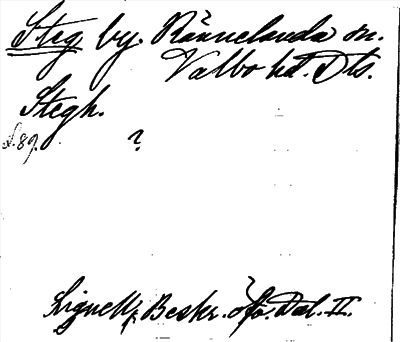 Steg by. Rännelanda sn.
Valbo hd. Dls.
Stegh.
S. 89. ?
Lignell, Beskr. öfv. Dal. II.